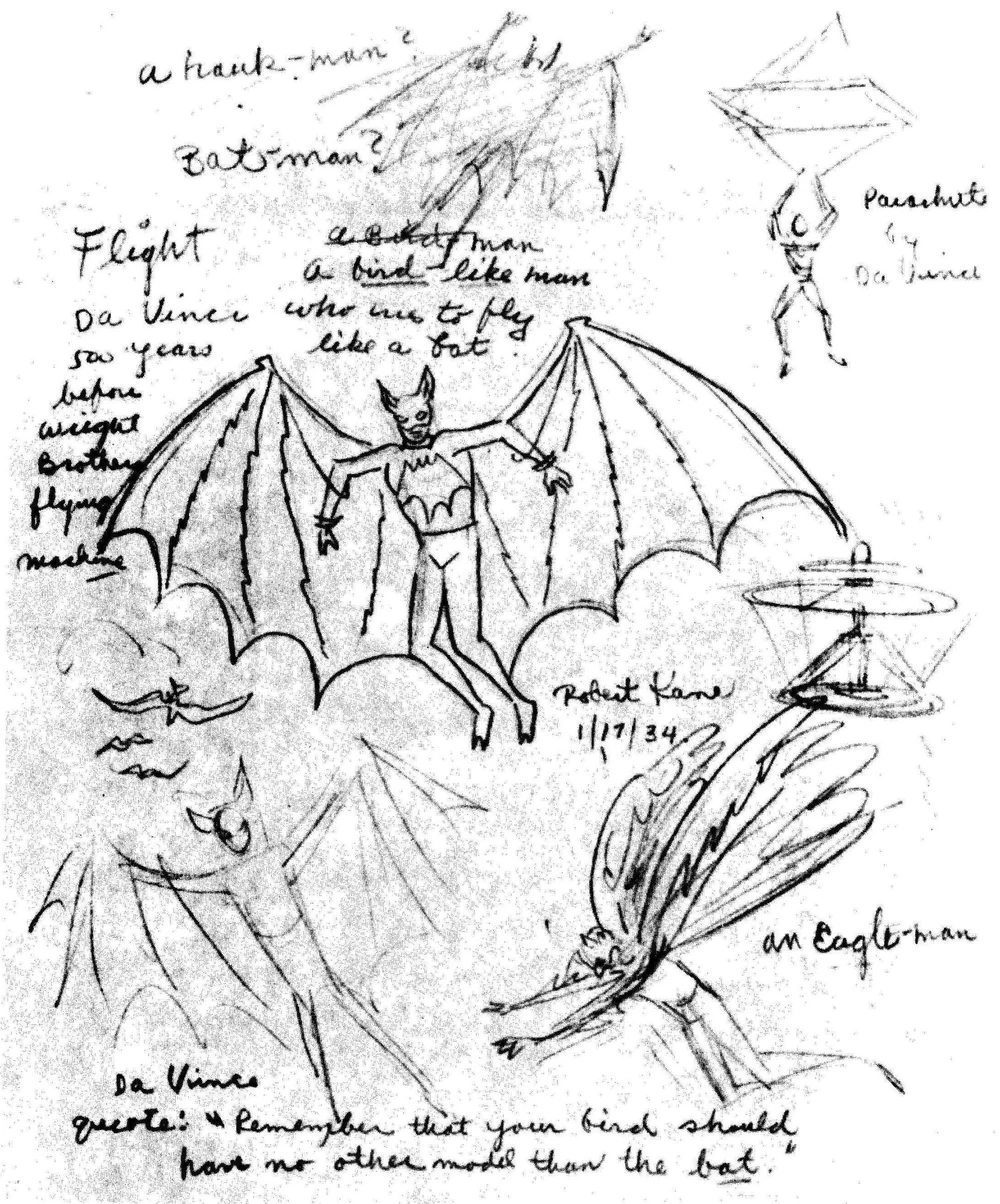 a hawk-man?
Bat-man?
Parachute
by
Da Vinci
Flight
Da Vinci
500 years
before
wright
Brothers
flying
machine
a Bird-man
a bird-like man
who to fly
like a bat
Robert Kane
1/17/34
an Eagle-man
Da Vinci
quote: "Remember that your bird should
have no other model than the bat."